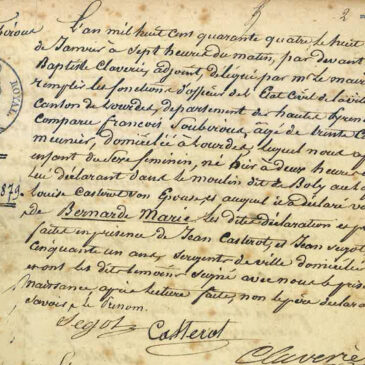 2
L'an mil huit cent quarante quatre le huit
de Janvier a Sept heures du matin, par devant
Baptiste Claverie, adjoint, délégué par mr le mair
remplir les fonctions d'officier de l'Etat Civil de la vil
Canton de Lourdes, departement des hautes Pyren
Comparu françois Soubirous, agé de trente C
meunier, domicilié a Lourdes, lequel nous a
enfant du Sexe feminin, né hier à deux heures
lui déclarant dans le moulin dit de Boly au
Louise Casterot son Epouse et auquel il a déclaré vo
de Bernarde Marie les dites déclaration et p
faites en présence de Jean Casterot, et Jean Segot
Cinquante un ans, Sergents de ville domicilié
et ont les dits temoins Signé avec nous le prés
naissance, après lecture faite, non le père déclara
savoir
Segot
Casterot
Claverie
ROYAL
879.